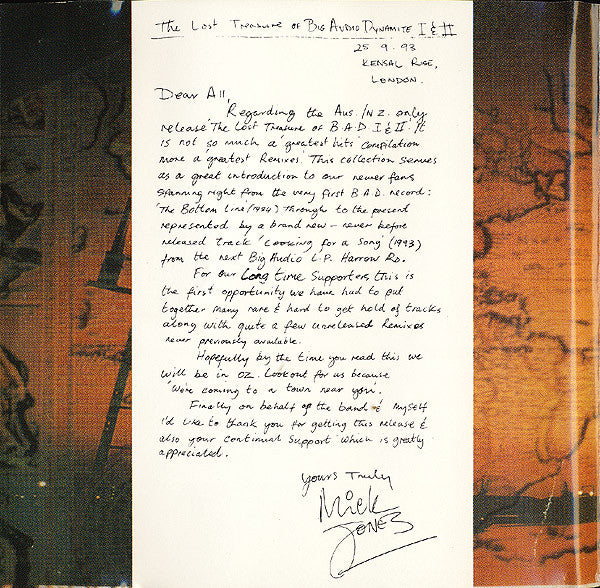 The Lost Treasure of Big Audio Dynamite I & II
25 . 9 . 93
Kensal Rise,
London.
Dear All,
Regarding the Aus./N.Z. only
release 'The Lost Treasure of B.A.D I & II'. It
is not so much a 'greatest hits' compilation
more a 'greatest Remixes'. This collection serves
as a great introduction to our newer fans
spanning right from the very first B.A.D. record:
'The Bottom Line' (1984) through to the present
represented by a brand new – never before
released track 'Looking for a Song' (1993)
from the next Big Audio L.P. Harrow Rd.
For our Long time supporters, this is
the first opportunity we have had to put
together many rare & hard to get hold of tracks
along with quite a few unreleased Remixes
never previously available.
Hopefully by the time you read this we
will be in OZ. Lookout for us because
'We're coming to a town near you'.
Finally on behalf of the band & myself
I'd like to thank you for getting this release &
also your continual support which is greatly
appreciated.
Yours Truly
Mick
Jones